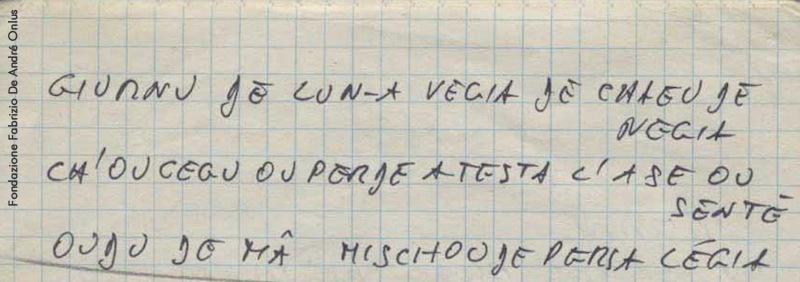 Fondazione Fabrizio De André Onlus
GIURNU DĒ LUN-A VEGIA DE CHAEU DE
NEGIA
CH'OU CEGU OU PERDE A TESTA L'ASE OU
SENTĒ
OUDU DE MÂ MISCHOU DE PERSA LÉGIA